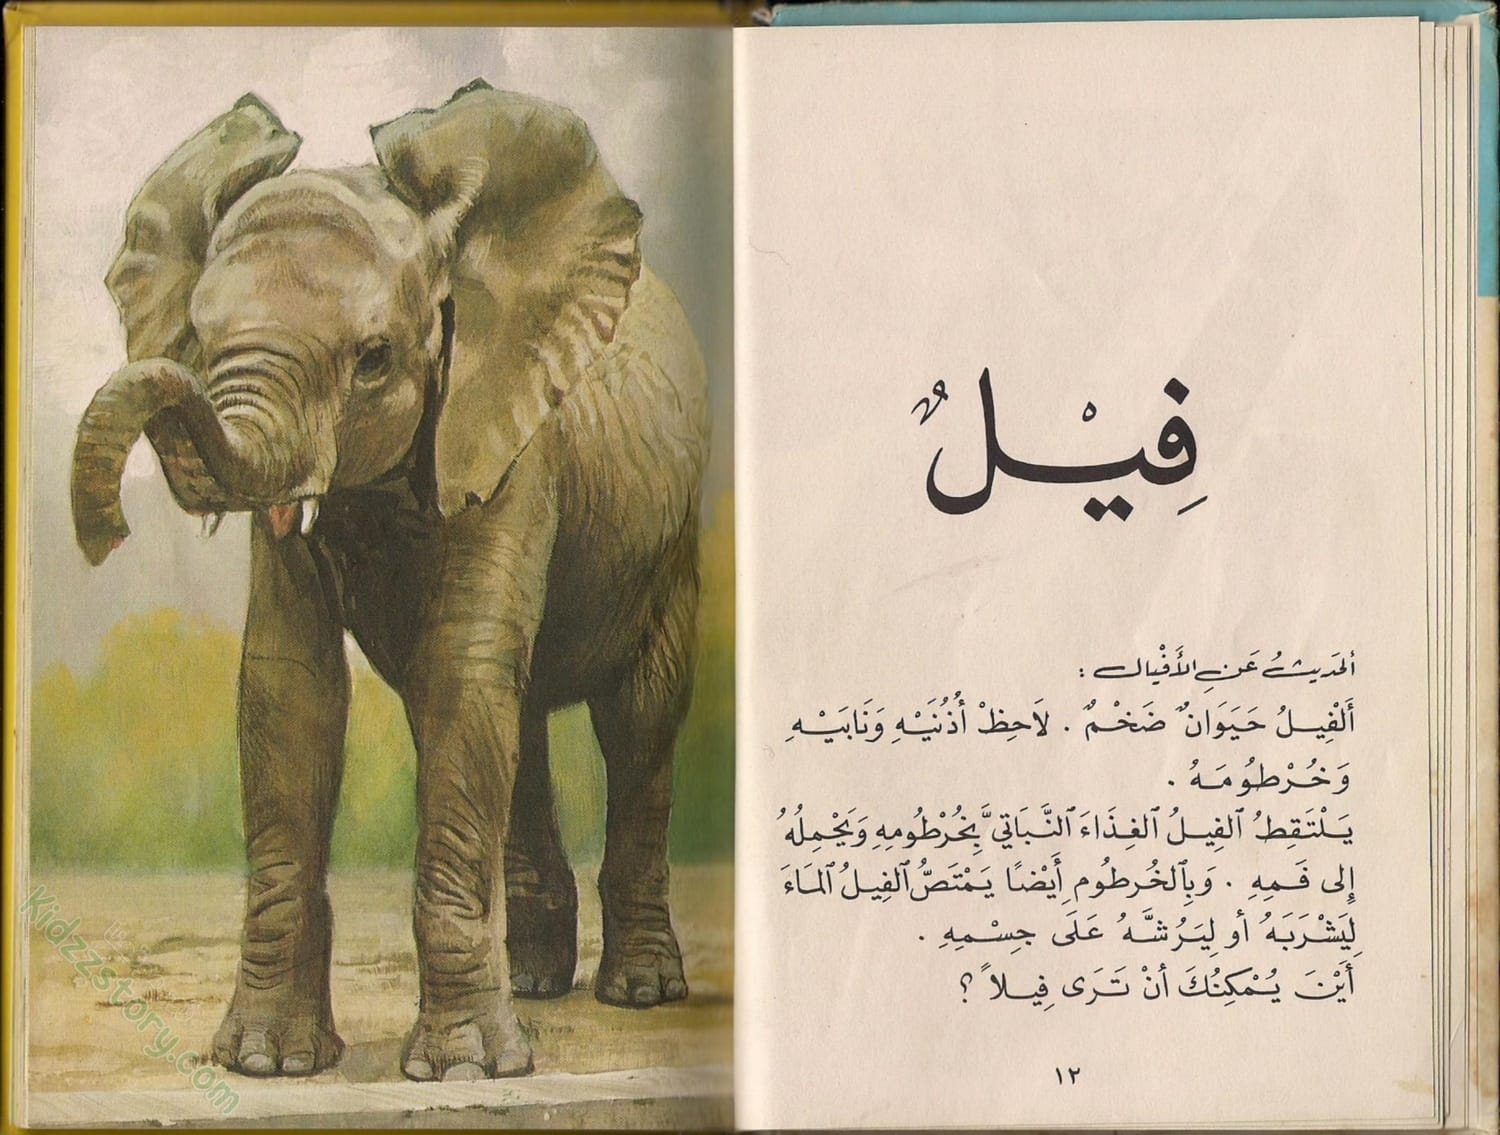 فِيْلٌ
ألحَديثُ عَنِ الأَفْيال :
أَلْفِيلُ حَيَوَانٌ ضَخْمٌ . لاَحِظْ أُذُنَيْهِ وَنَابَيْهِ
وَخُرْطُومَهُ .
يَلْتَقِطُ ٱلفِيلُ ٱلغِذَاءَ ٱلنَّبَاتيَّ بِخُرْطُومِهِ وَيَحْمِلُهُ
إِلى فَمِهِ . وَبِٱلخُرطُومِ أَيْضًا يَمْتَصُّ ٱلفِيلُ ٱلمَاءَ
لِيَشْرَبَهُ أو لِيَرُشَّهُ عَلَى جِسْمِهِ .
أَيْنَ يُمْكِنُكَ أنْ تَرَى فِيلاً ؟
١٢
Kidzzstory.com